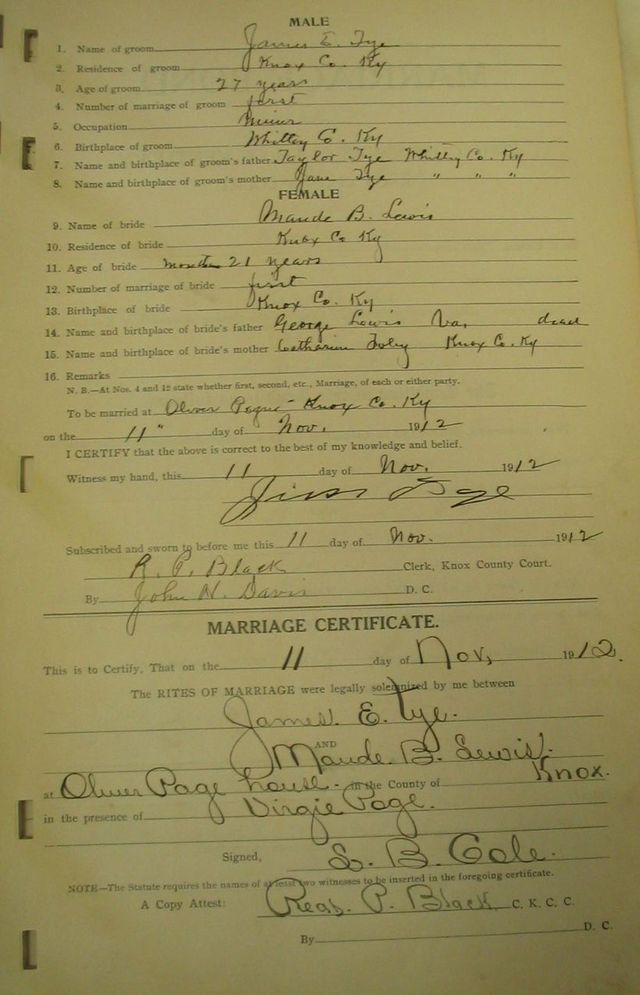 MALE
1. Name of groom James E. Tye
2. Residence of groom Knox Co. Ky
3. Age of groom 27 years
4. Number of marriage of groom first
5. Occupation miner
6. Birthplace of groom Whitley Co. Ky
7. Name and birthplace of groom's father Taylor Tye Whitley Co. Ky
8. Name and birthplace of groom's mother Jane Tye " " "
FEMALE
9. Name of bride Maude B. Lewis
10. Residence of bride Knox Co Ky
11. Age of bride 21 years
12. Number of marriage of bride first
13. Birthplace of bride Knox Co. Ky
14. Name and birthplace of bride's father George Lewis Va, dead
15. Name and birthplace of bride's mother Foley Knox Co. Ky
16. Remarks
N. B.—At Nos. 4 and 12 state whether first, second, etc., Marriage, of each or either party.
To be married at Oliver Knox Co. Ky
on the 11" day of Nov. 1912
I CERTIFY that the above is correct to the best of my knowledge and belief.
Witness my hand, this 11 day of Nov. 1912
Subscribed and sworn to before me this 11 day of Nov. 1912
R. P. Black Clerk, Knox County Court.
By John N. Davis D. C.
MARRIAGE CERTIFICATE.
This is to Certify, That on the 11 day of Nov, 1912.
The RITES OF MARRIAGE were legally solemnized by me between
James. E. Tye.
AND
Maude. B. Lewis.
at Oliver Page house. in the County of Knox.
in the presence of Virgie Page.
Signed, S. B. Cole.
NOTE—The Statute requires the names of at least two witnesses to be inserted in the foregoing certificate.
A Copy Attest: P. Black C. K. C. C.
By D. C.